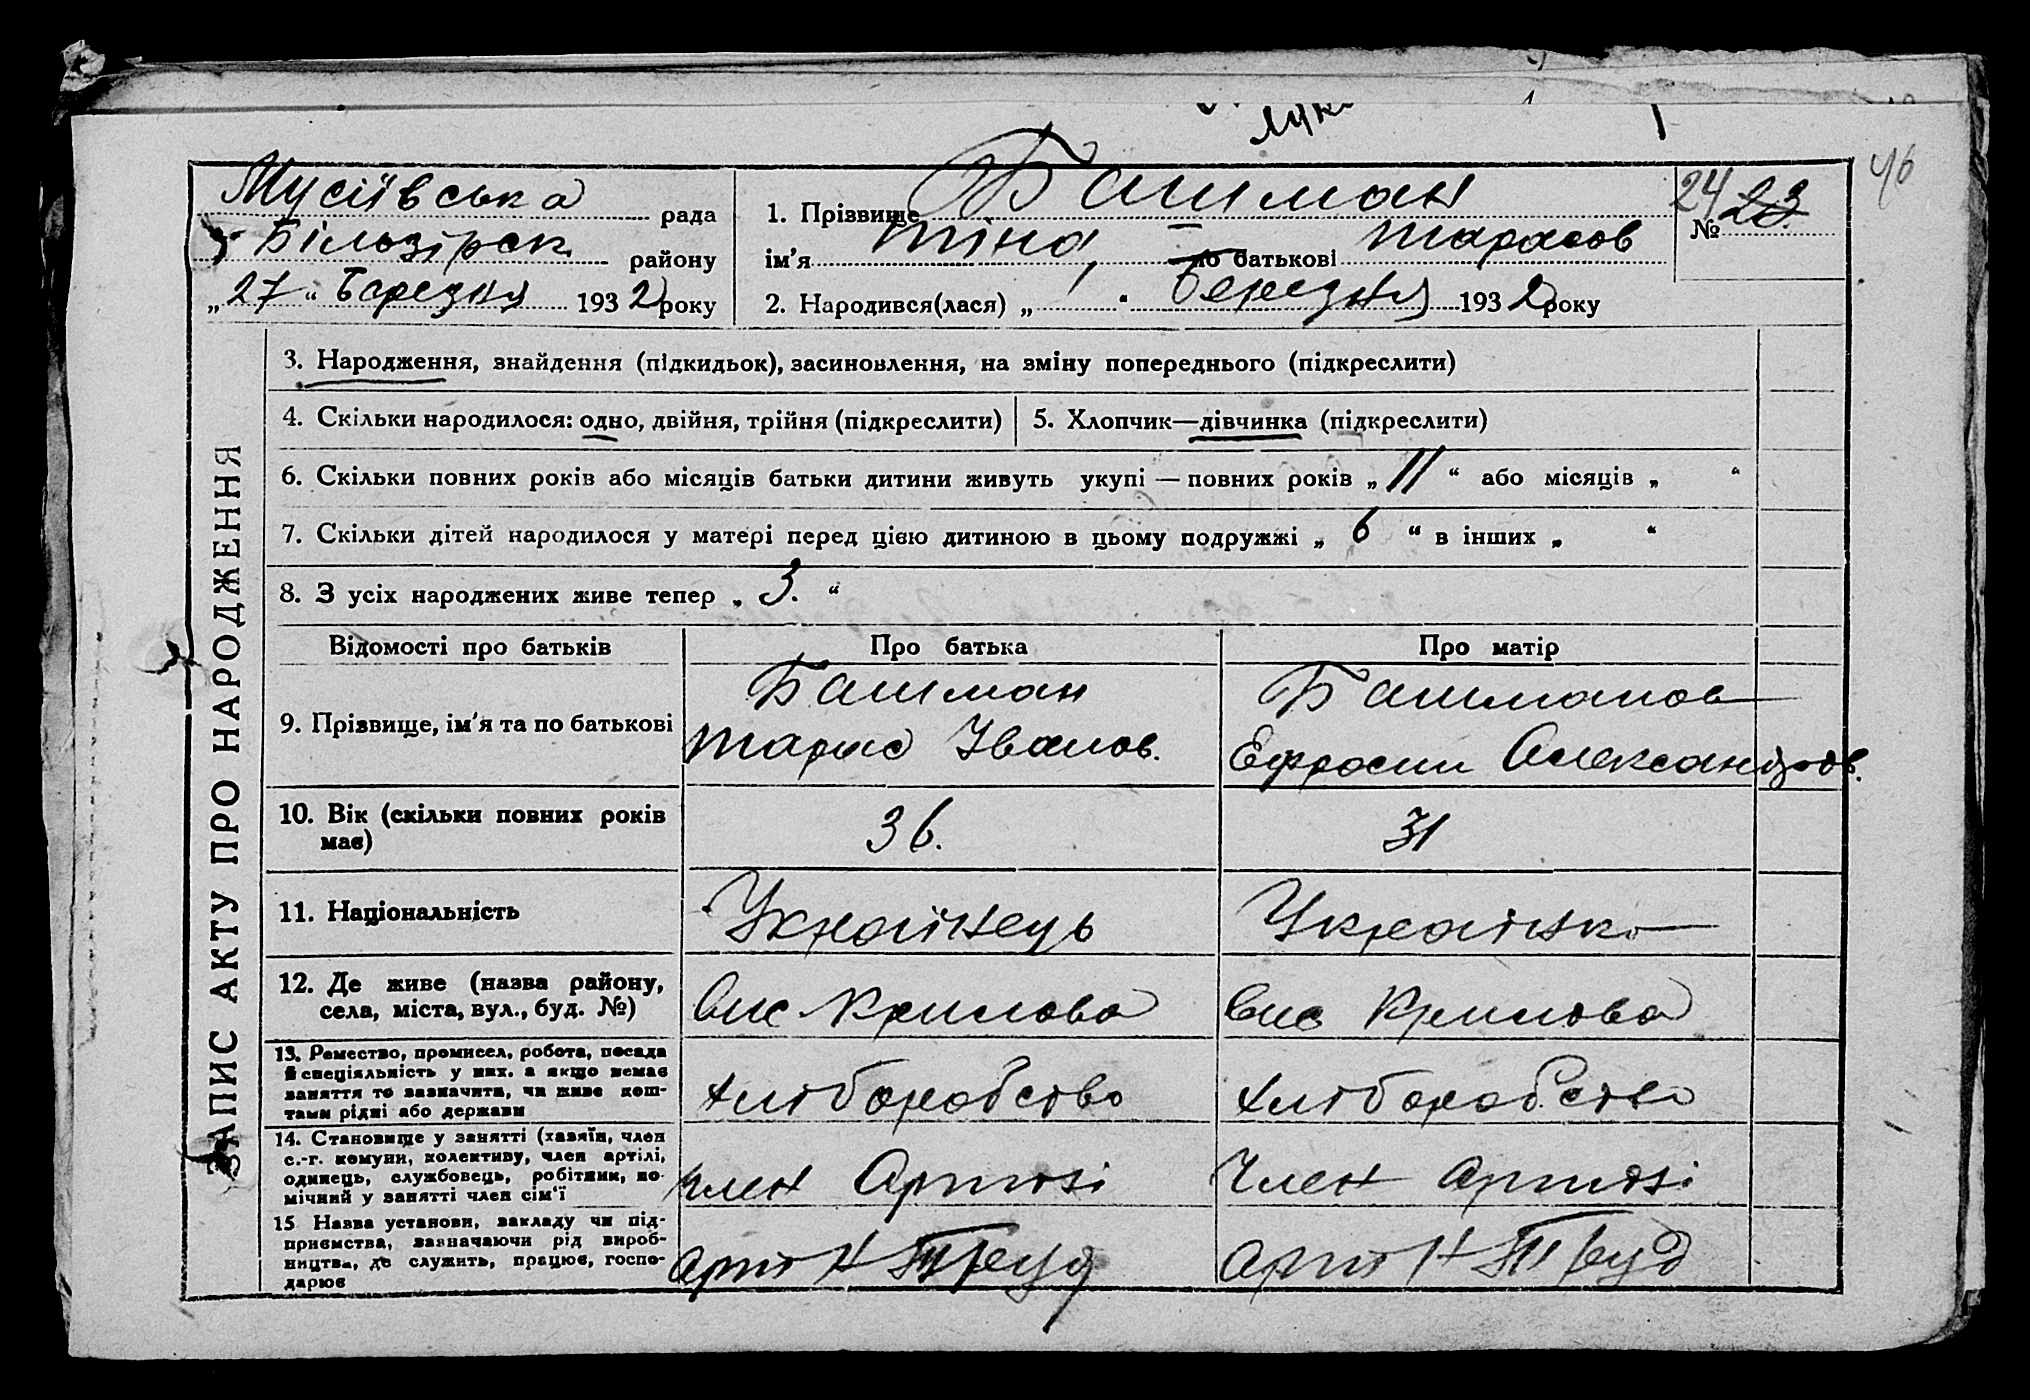 46
Мусіївська рада
Більзірск району
„27“ Березня 1932 року
1. Прізвище Башман
ім'я Тіна, по батькові Тарасов
2. Народився(лася) „ “ Березня 1932 року
24 № 23
ЗАПИС АКТУ ПРО НАРОДЖЕННЯ
3. Народження, знайдення (підкидьок), засиновлення, на зміну попереднього (підкреслити)
4. Скільки народилося: одно, двійня, трійня (підкреслити) 5. Хлопчик—дівчинка (підкреслити)
6. Скільки повних років або місяців батьки дитини живуть укупі — повних років „ 11 “ або місяців „ “
7. Скільки дітей народилося у матері перед цією дитиною в цьому подружжі „ 6 “ в інших „ “
8. З усіх народжених живе тепер „ 3. “
Відомості про батьків Про батька Про матір
9. Прізвище, ім'я та по батькові
Башман
Тарас Іванов.
Башманов
Ефросин Александров.
10. Вік (скільки повних років
має)
36.
31
11. Національність Українець Українка
12. Де живе (назва району,
села, міста, вул., буд. №)
Крилова
Крилова
13. Ремество, промисел, робота, посада
й спеціяльність у них, а якщо немає
заняття то зазначити, чи живе кош-
тами рідні або держави
хліборобство
хліборобство
14. Становище у занятті (хазяїн, член
с.-г. комуни, колективу, член артілі,
одинець, службовець, робітник, по-
мічний у занятті член сім'ї
Член Артілі
Член Артілі
15 Назва установи, закладу чи під-
приємства, зазначаючи рід вироб-
ництва, де служить, працює, госпо-
дарює
Труд
Труд